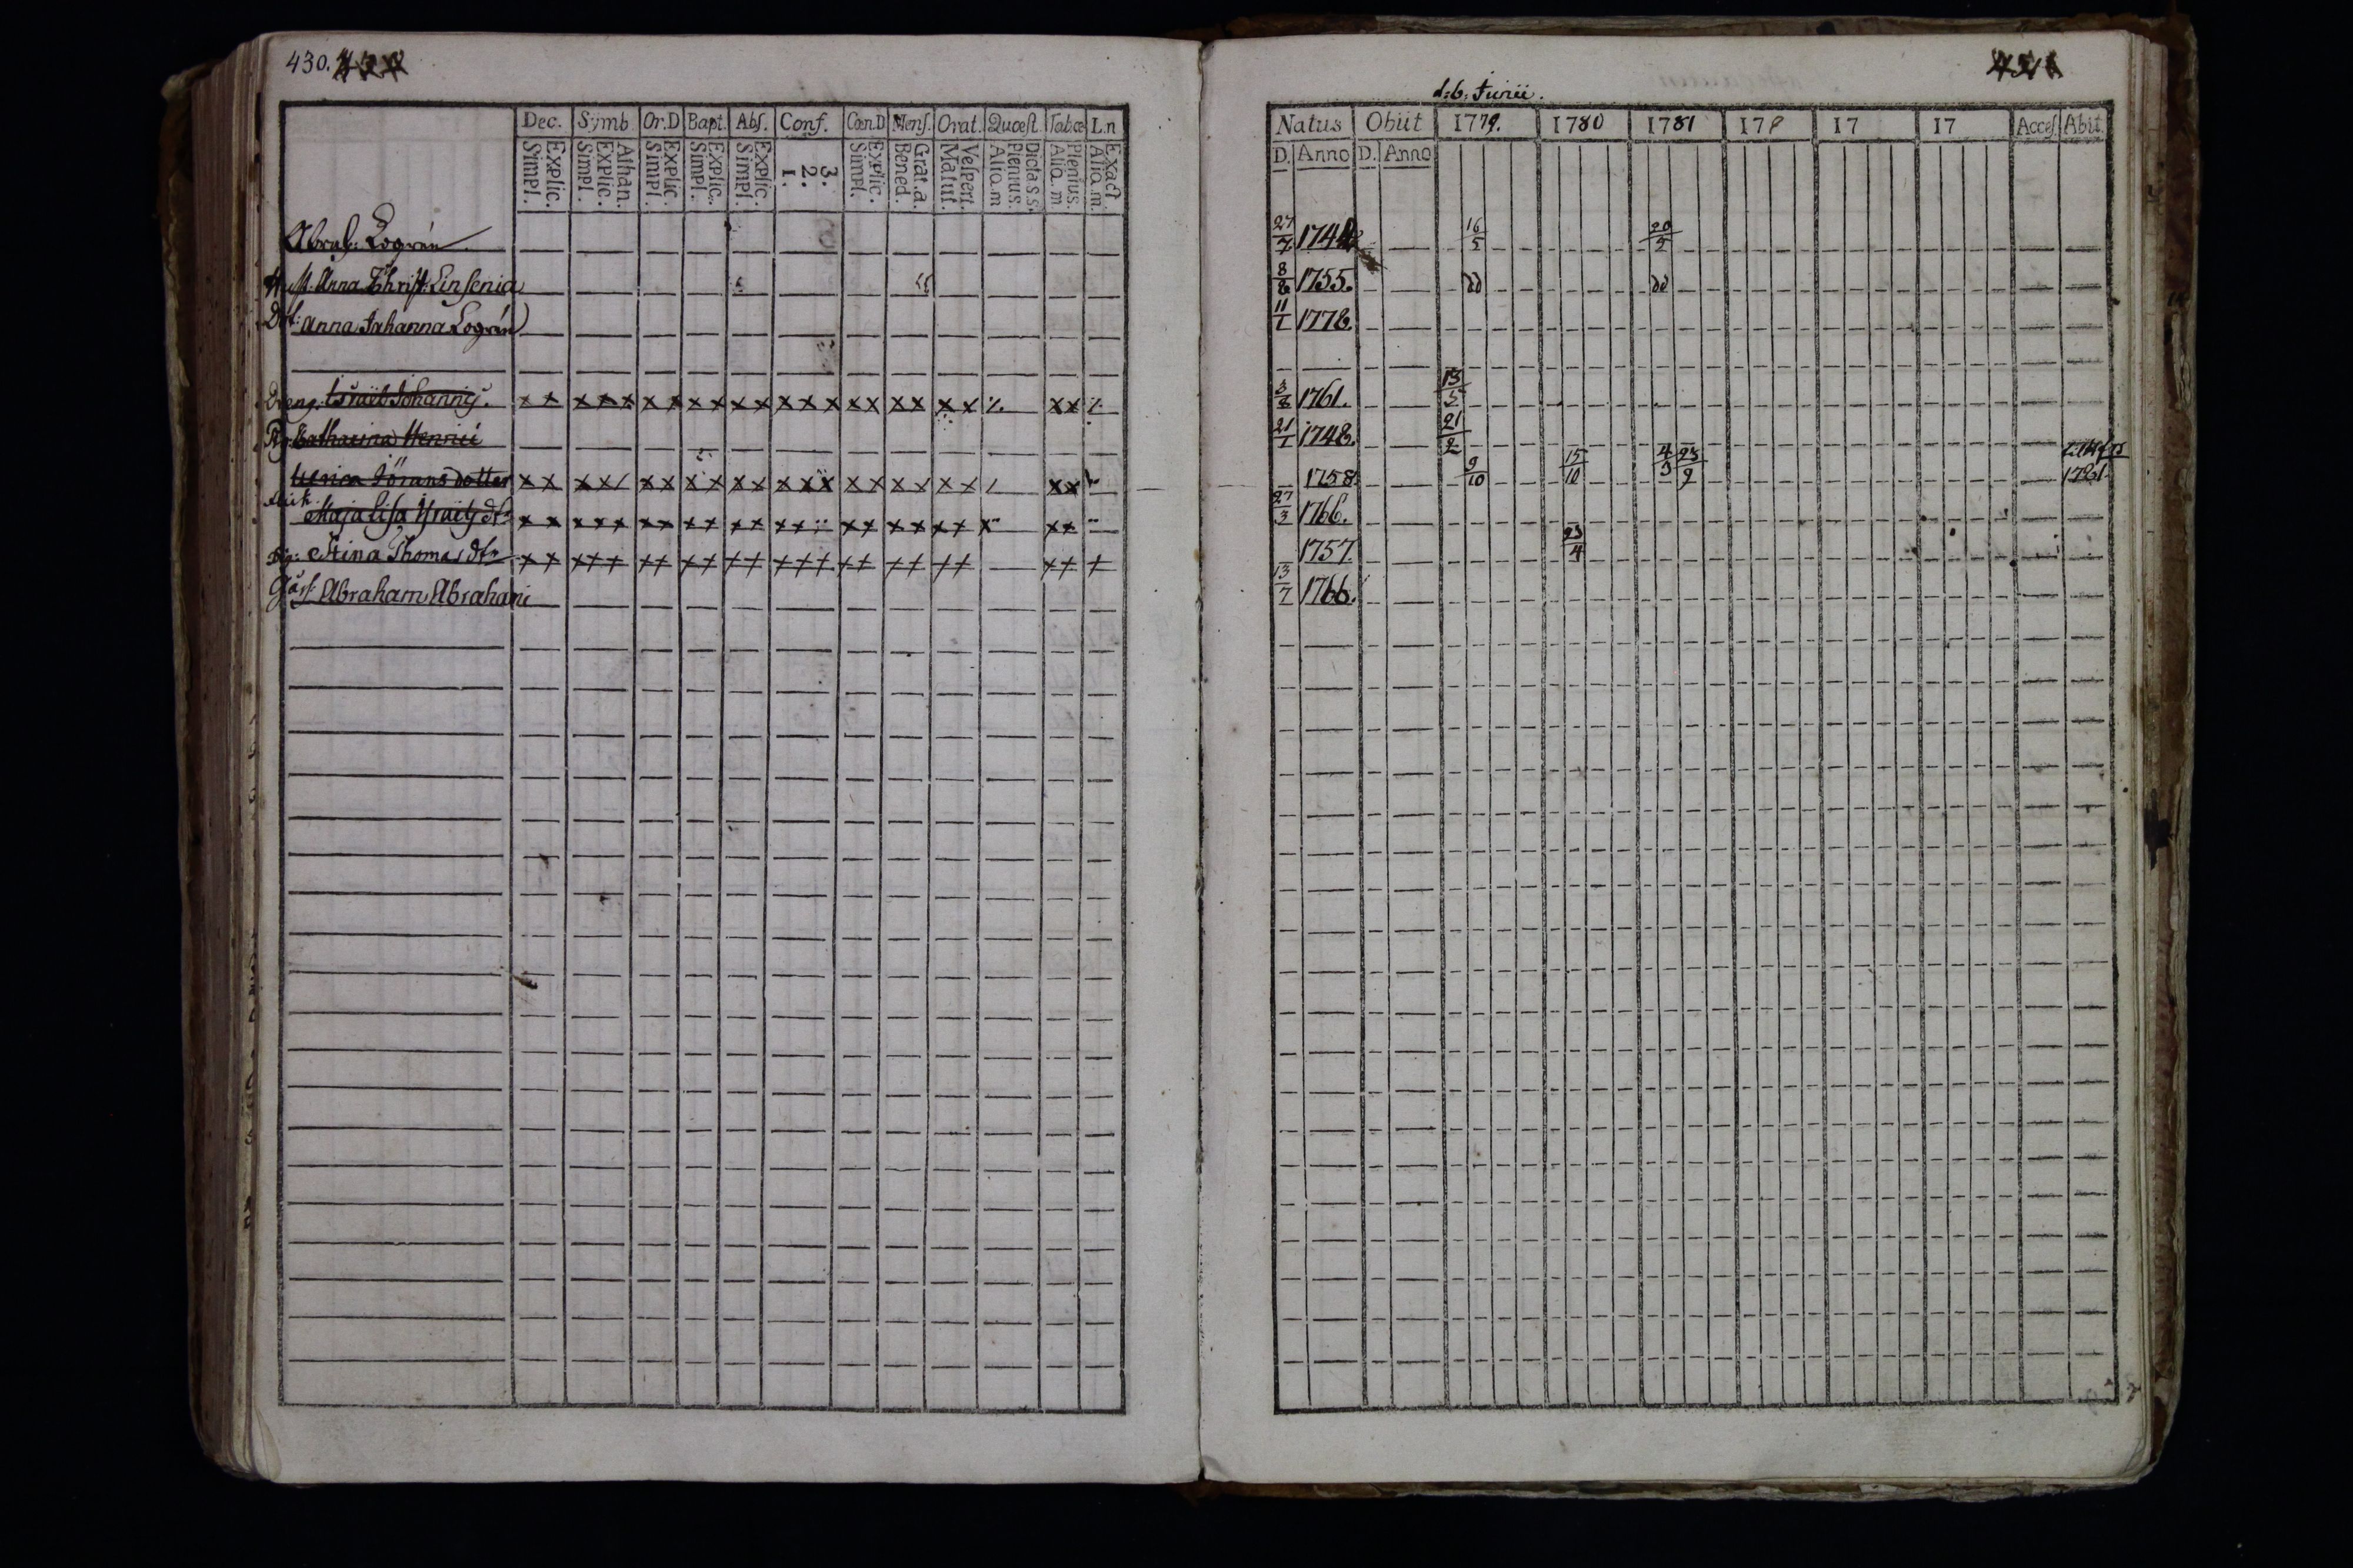 430.
Dec. Symb. Or.D Bapt. Abſ. Conf. Cœn.D Menſ. Orat. Quæſt. Tabœ L.n
Explic. Simpl. Athan. Explic. Simpl. Explic. Simpl. Explic. Simpl. Explic. Simpl. 3. 2. 1. Explic. Simpl. Grat.a. Bened. Veſpert. Matut. Dicta s.s. Plenius. Alia.m Plenius. Alia.m. Exact Alia.m.
Abrah: Logrén
Anna Christ: Linsenia
Anna Johanna Logrén
Dreng. Israel Johannis. x x x x x x x x x x x x x x x x x x x x x ⁒ x x ⁒
Pig. Catharina Henrici
Ulrica Jörans dotter x x x x x x x x x x x x x x x x x x x x x x
Maja Lisa x x x x x x x x x x x x x x x x x x x x x
Pig: Stina Thomæ dtr x x x x x x x x x x x x x x x x x x x x x x x
Abraham Abrahami
d: 6: Junii.
Natus Obiit 1779. 1780 1781 17 17 17 Acceſ. Abit.
D. Anno D. Anno
27/7 174 16/5 20/5
8/8 1755. dd dd
11/1 1778.
3/8 1761. 13/5
21/1 1748. 21/2
1758 9/10 15/10 4/3 23/9 1781.
27/3 1766.
1757. 23/4
13/7 1766.